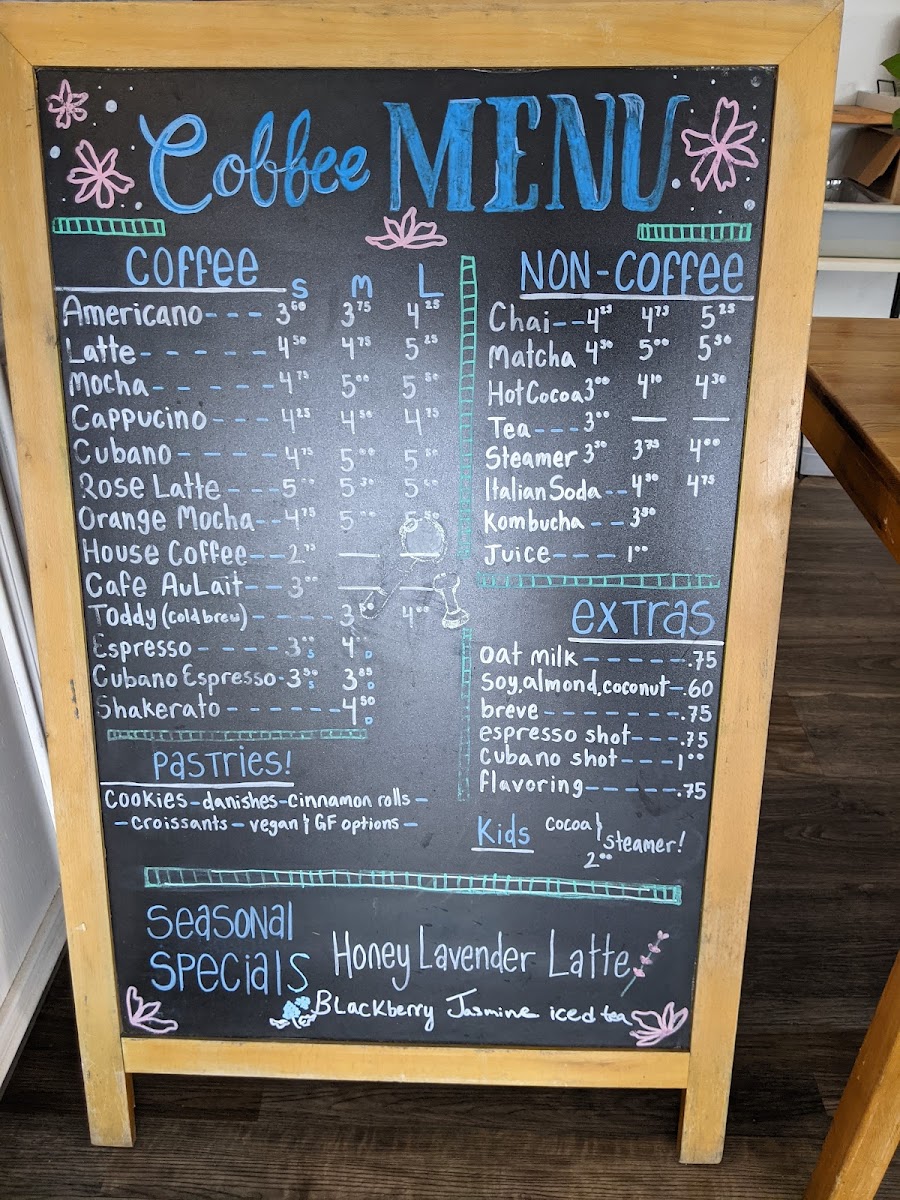 Coffee MENU
COFFEE
S M L
Americano --- 3 60 3 75 4 25
Latte ----- 4 50 4 75 5 25
Mocha ----- 4 75 5 00 5 50
Cappucino --- 4 25 4 50 4 75
Cubano ---- 4 75 5 00 5 50
Rose Latte --- 5 00 5 30 5
Orange Mocha -- 4 75 5 00 5 50
House Coffee -- 2 75 — —
Cafe AuLait -- 3 00 — —
Toddy (cold brew) ----- 3 50 4 00
Espresso ----- 3 00 S 4 00 D
Cubano Espresso - 3 50 S 3 85 D
Shakerato ------ 4 50 D
Pastries!
cookies - danishes - cinnamon rolls -
- croissants - vegan & GF options -
NON-COFFEE
Chai -- 4 25 4 75 5 25
Matcha 4 50 5 00 5 50
Hot Cocoa 3 00 4 10 4 30
Tea --- 3 00 — —
Steamer 3 50 3 75 4 00
Italian Soda -- 4 50 4 75
Kombucha -- 3 50
Juice ---- 1 00
EXTRAS
oat milk ------ .75
soy, almond, coconut - .60
breve ------- .75
espresso shot --- .75
cubano shot ---- 1 00
flavoring ----- .75
Kids cocoa & steamer!
2 00
Seasonal
Specials
Honey Lavender Latte
Blackberry Jasmine iced tea